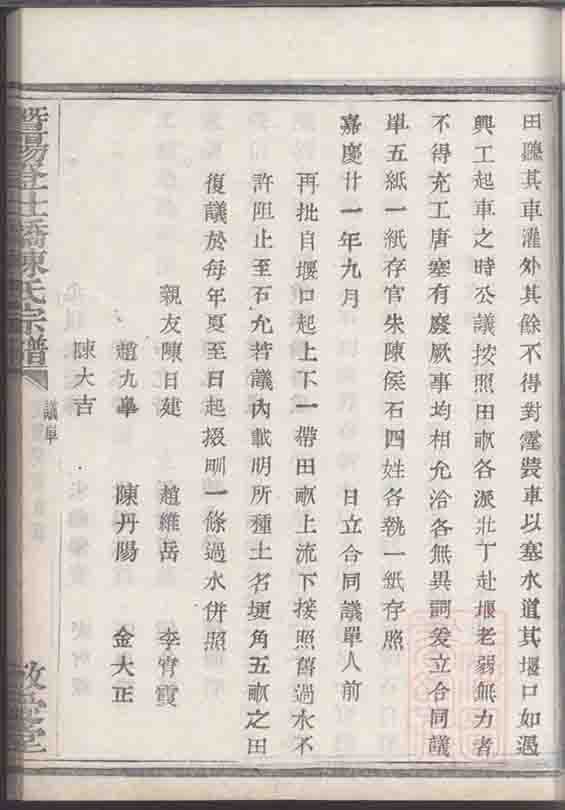 田聽其車灌外其餘不得對霪裝車以塞水道其堰口如遇
興工起車之時公議按照田畝各派壯丁赴堰老弱無力者
不得充工唐塞有廢厥事均相允洽各無異詞爰立合同議
单五紙一紙存官朱陳侯石四姓各執一紙存照
嘉慶廿一年九月　日立合同議單人前
再批自堰口起上下一帶田畝上流下接照舊過水不
許阻止至石允若議內載明所種土名埂角五畝之田
復議於每年夏至日起掇甽一條過水併照
親友陳日建　趙維岳　李霄霞
趙九臯　陳丹陽　金大正
陳大吉
暨陽登仕橋陳氏宗譜
議單